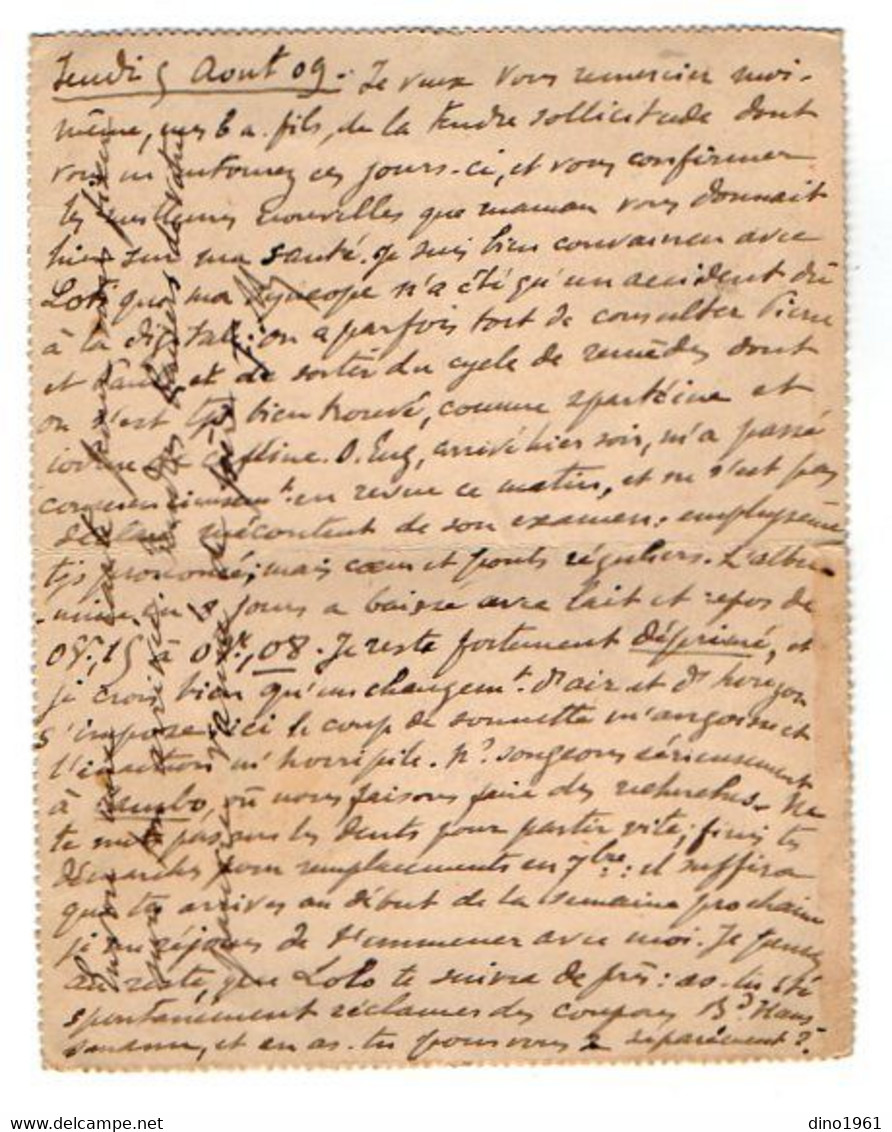 Jeudi 5 Aout 09. Je veux vous remercier moi-
même, mes b. a. fils, de la tendre sollicitude dont
vous m'entourez ces jours-ci, et vous confirmer
les meilleures nouvelles que maman vous donnait
hier sur ma santé. Je suis bien convaincu avec
que ma syncope n'a été qu'un accident dû
à la digitale: on a parfois tort de consulter Pierre
et Paul et de sortir du cycle de remèdes dont
on s'est tjs bien trouvé, comme spartéine et
et caféine. O. Eug, arrivé hier soir, m'a passé
consciencieusemt. en revue ce matin, et ne s'est pas
déclaré mécontent de son examen: emphysème
tjs prononcé, mais cœur et pouls réguliers. L'albu-
-mine en jours a baissé avec lait et repos de
0gr,15 à 0gr,08. Je reste fortement déprimé, et
je crois bien qu'un changemt. d'air et d' horizon
s'impose: ici le coup de sonnette m'angoisse et
l'inaction m'horripile. Ns. songeons sérieusement
à Cambo, où nous faisons faire des recherches. Ne
te mets pas sur les dents pour partir vite; finis tes
démarches pour remplacements en 7bre: il suffira
que tu arrives au début de la semaine prochaine
je me réjouis de t'emmener avec moi. Je pense
au reste, que Lolo te suivra de près: as-tu été
spontanément réclamer des coupons Bd Haus
smann, et en as-tu pour vous 2 séparément?
sur ton arrivée. Tendres baisers de votre
de père
dino1961